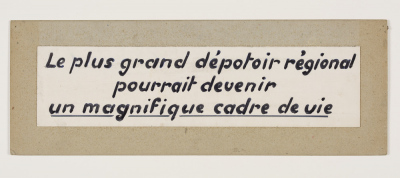 Le plus grand dépotoir régional
pourrait devenir
un magnifique cadre de vie